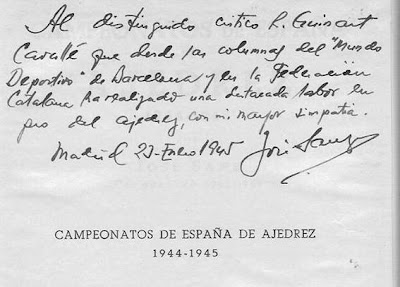 Al distinguido crítico R. Guinart
Cavallé que desde las columnas del "Mundo
Deportivo" de Barcelona y en la Federación
Catalana ha realizado una destacada labor en
pro del ajedrez, con mi mayor simpatía.
Madrid 23-Enero 1945 José Sanz
CAMPEONATOS DE ESPAÑA DE AJEDREZ
1944-1945